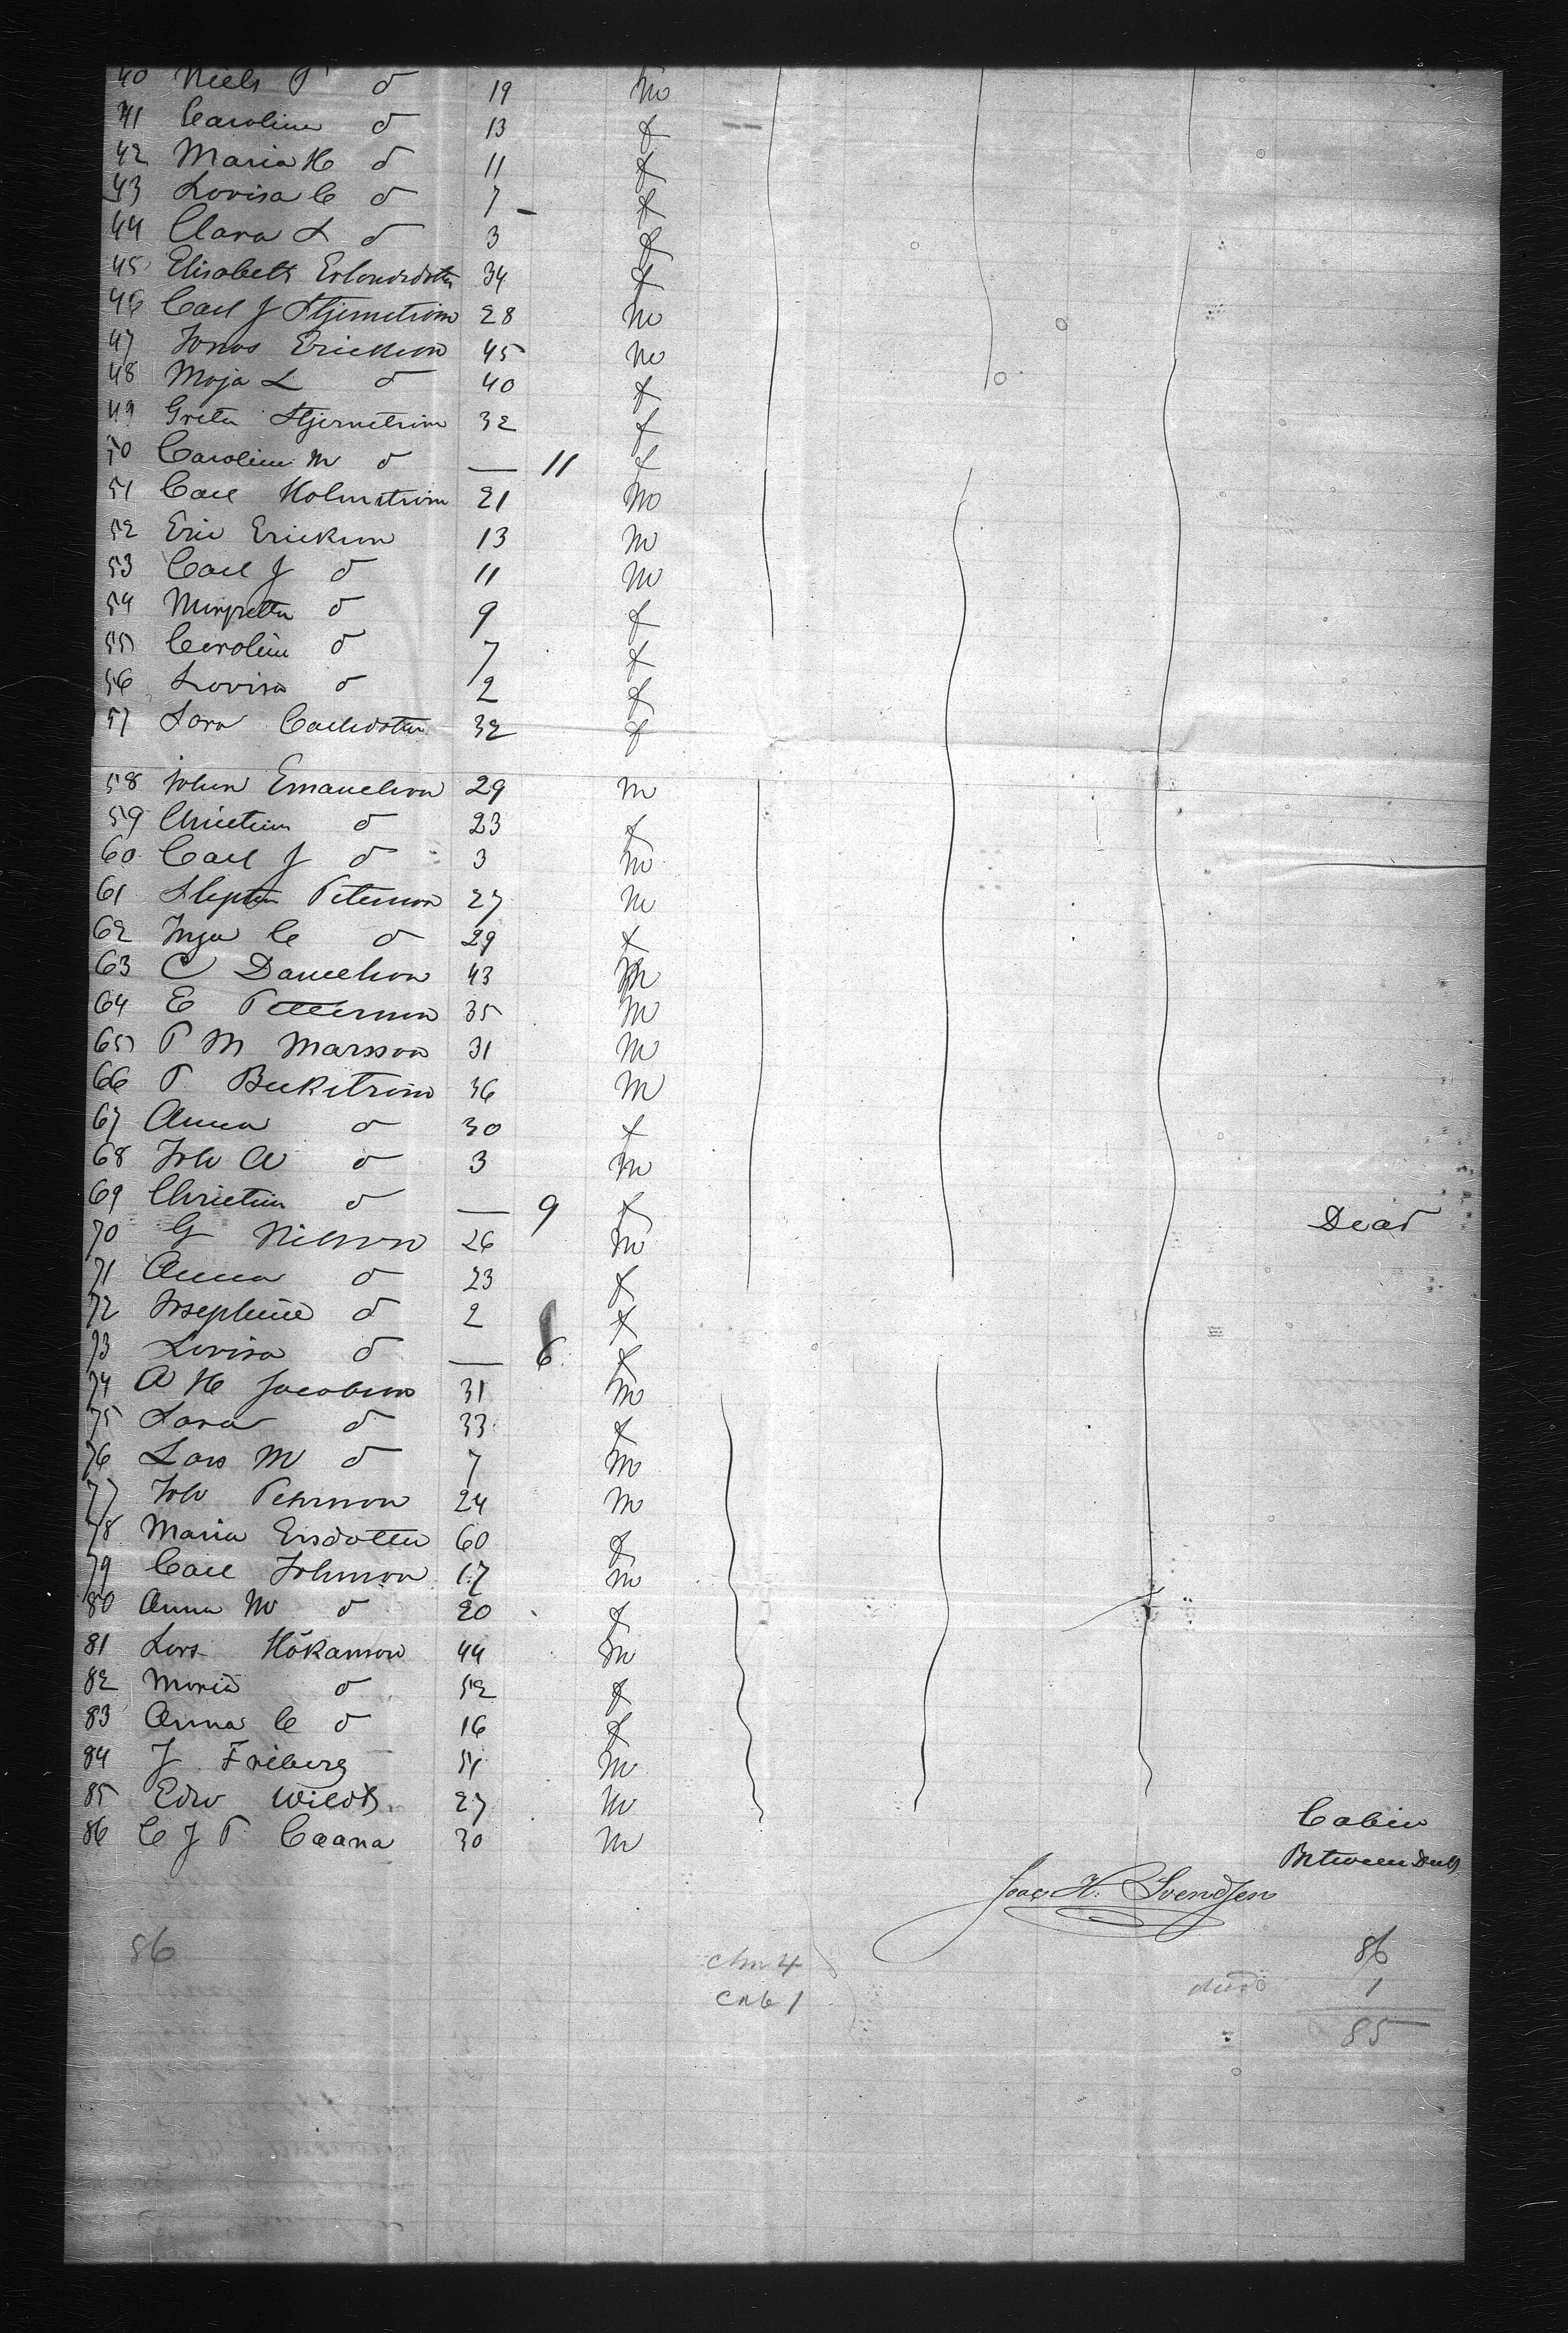 40 Niels P d 19 m
41 Caroline d 13 f
42 Maria H d 11 f
43 Lovisa C d 7 f
44 Clara L d 3 f
45 Elisabeth 34 f
46 Carl J Stjernström 28 m
47 Jonas Erickson 45 m
48 Maja L d 40 f
49 Greta Stjernström 32 f
50 Caroline M d — 11 f
51 Carl Holmström 21 m
52 Eric Erickson 13 m
53 Carl J d 11 m
54 Margretta d 9 f
55 Caroline d 7 f
56 Lovisa d 2 f
57 Sara Carlsdotter 32 f
58 Johan Emanuelson 29 m
59 Christina d 23 f
60 Carl J d 3 m
61 Peterson 27 m
62 Inga C d 29 f
63 C Danielson 43 m
64 E Petterson 35 m
65 P M Marsson 31 m
66 P Beckström 36 m
67 Anna d 30 f
68 Joh A d 3 m
69 Christin d — 9 f Dead
70 G Nilsson 26 m
71 Anna d 23 f
72 Josephine d 2 f
73 Lovisa d — 6 f
74 A H Jacobson 31 m
75 Sara d 33 f
76 Lars M d 7 m
77 Joh Pehrsson 24 m
78 Maria Ersdotter 60 f
79 Carl Johnson 17 m
80 Anna M d 20 f
81 Lars Håkanson 44 m
82 Maria d 52 f
83 Anna C d 16 f
84 J Friberg 51 m
85 Edw 27 m
86 C J P 30 m Cabin
Between Deck
Isac H. Svendsen
86 chn 4 86
cab 1 died 1
85